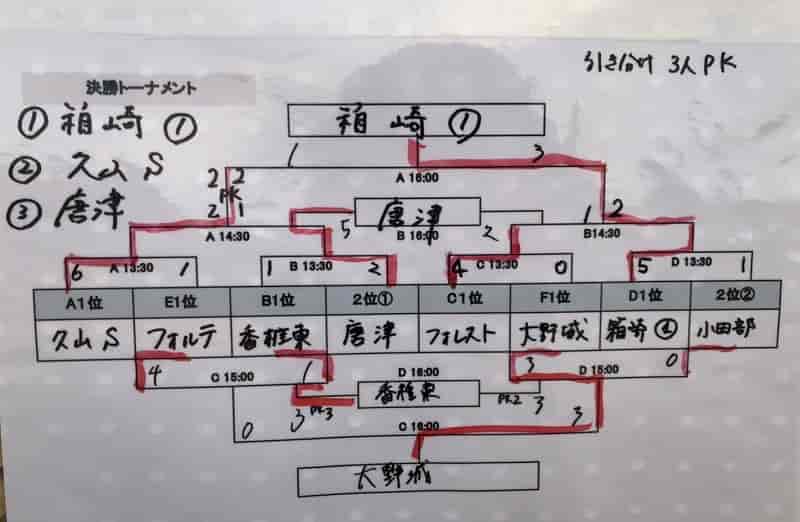 引き分け 3人PK
決勝トーナメント
① 箱崎 ①
② 久山S
③ 唐津
箱崎 ①
1 3
A 16:00
2 2
PK
2 1
唐津
5 2
B 16:00
1 2
A 14:30
B14:30
6 1
A 13:30
1 2
B 13:30
4 0
C 13:30
5 1
D 13:30
A1位 E1位 B1位 2位① C1位 F1位 D1位 2位②
久山S フォルテ 香椎東 唐津 フォレスト 大野城 箱崎① 小田部
4 1
C 15:00
D 16:00
3 0
D 15:00
香椎東
3 PK3
PK2 3
0 3
C 16:00
大野城